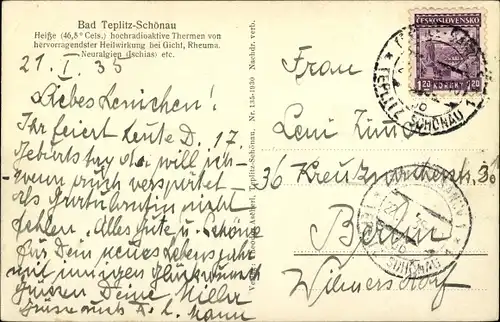 Bad Teplitz-Schönau
Heiße (46,5° Cels.) hochradioaktive Thermen von
hervorragendster Heilwirkung bei Gicht, Rheuma.
Neuralgien (Ischias) etc.
21. I. 35
Liebes Lenichen!
Ihr feiert heute D. 17.
Geburtstag da will ich
wenn auch verspätet
als Gratulantin nicht
fehlen. Alles gute u. schöne
für Dein neues Lebensjahr
mit innigen Glückwunsch
Grüssen Deine Milla
Grüsse auch a. l. Mann
Nr. 135-1930 Nachdr. verb.
Frau
Leni
36 Kreuznacherstr. 30
Berlin
Wilmersdorf
ČESKOSLOVENSKO
1.20 KORUNY 1.20
SCHÖNAU 1